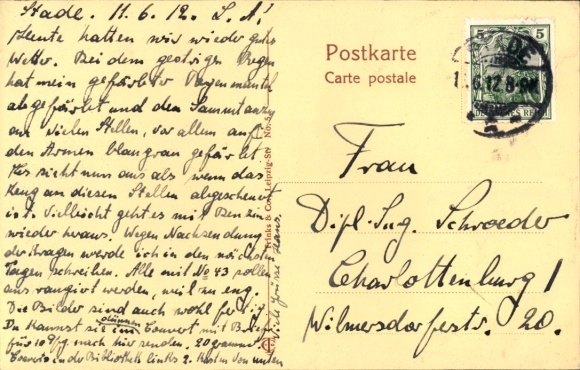 Stade. 11.6.12. L. A!
Heute hatten wir wieder gutes
Wetter. Bei dem gestrigen Regen
hat mein gefärbter Regenmantel
abgefärbt und den Sammtanzug
an vielen Stellen, vor allem auf
den Armen blaugrau gefärbt.
Es sieht nun aus als wenn das
Zeug an diesen Stellen abgescheuert
ist. Vielleicht geht es mit Benzin
wieder heraus. Wegen Nachsendung
der Kragen werde ich in den nächsten
Tagen schreiben. Alle mit No 43 sollen
aus rangiert werden, weil zu eng.
Die Bilder sind auch wohl fertig.
Du kannst sie im dünnen Couvert mit Brief
für 10 Pfg. nach hier senden. 20 gramm
Couverts in der Bibliothek links 2. Kasten von unten
Viele Grüsse Hans.
Postkarte
Carte postale
5 5
STADE
11.6.12.8-9
DEUTSCHES REICH
Trinks & Co., Leipzig
Frau
Dipl. Ing. Schroeder
Charlottenburg 1
Wilmersdorferstr. 20.